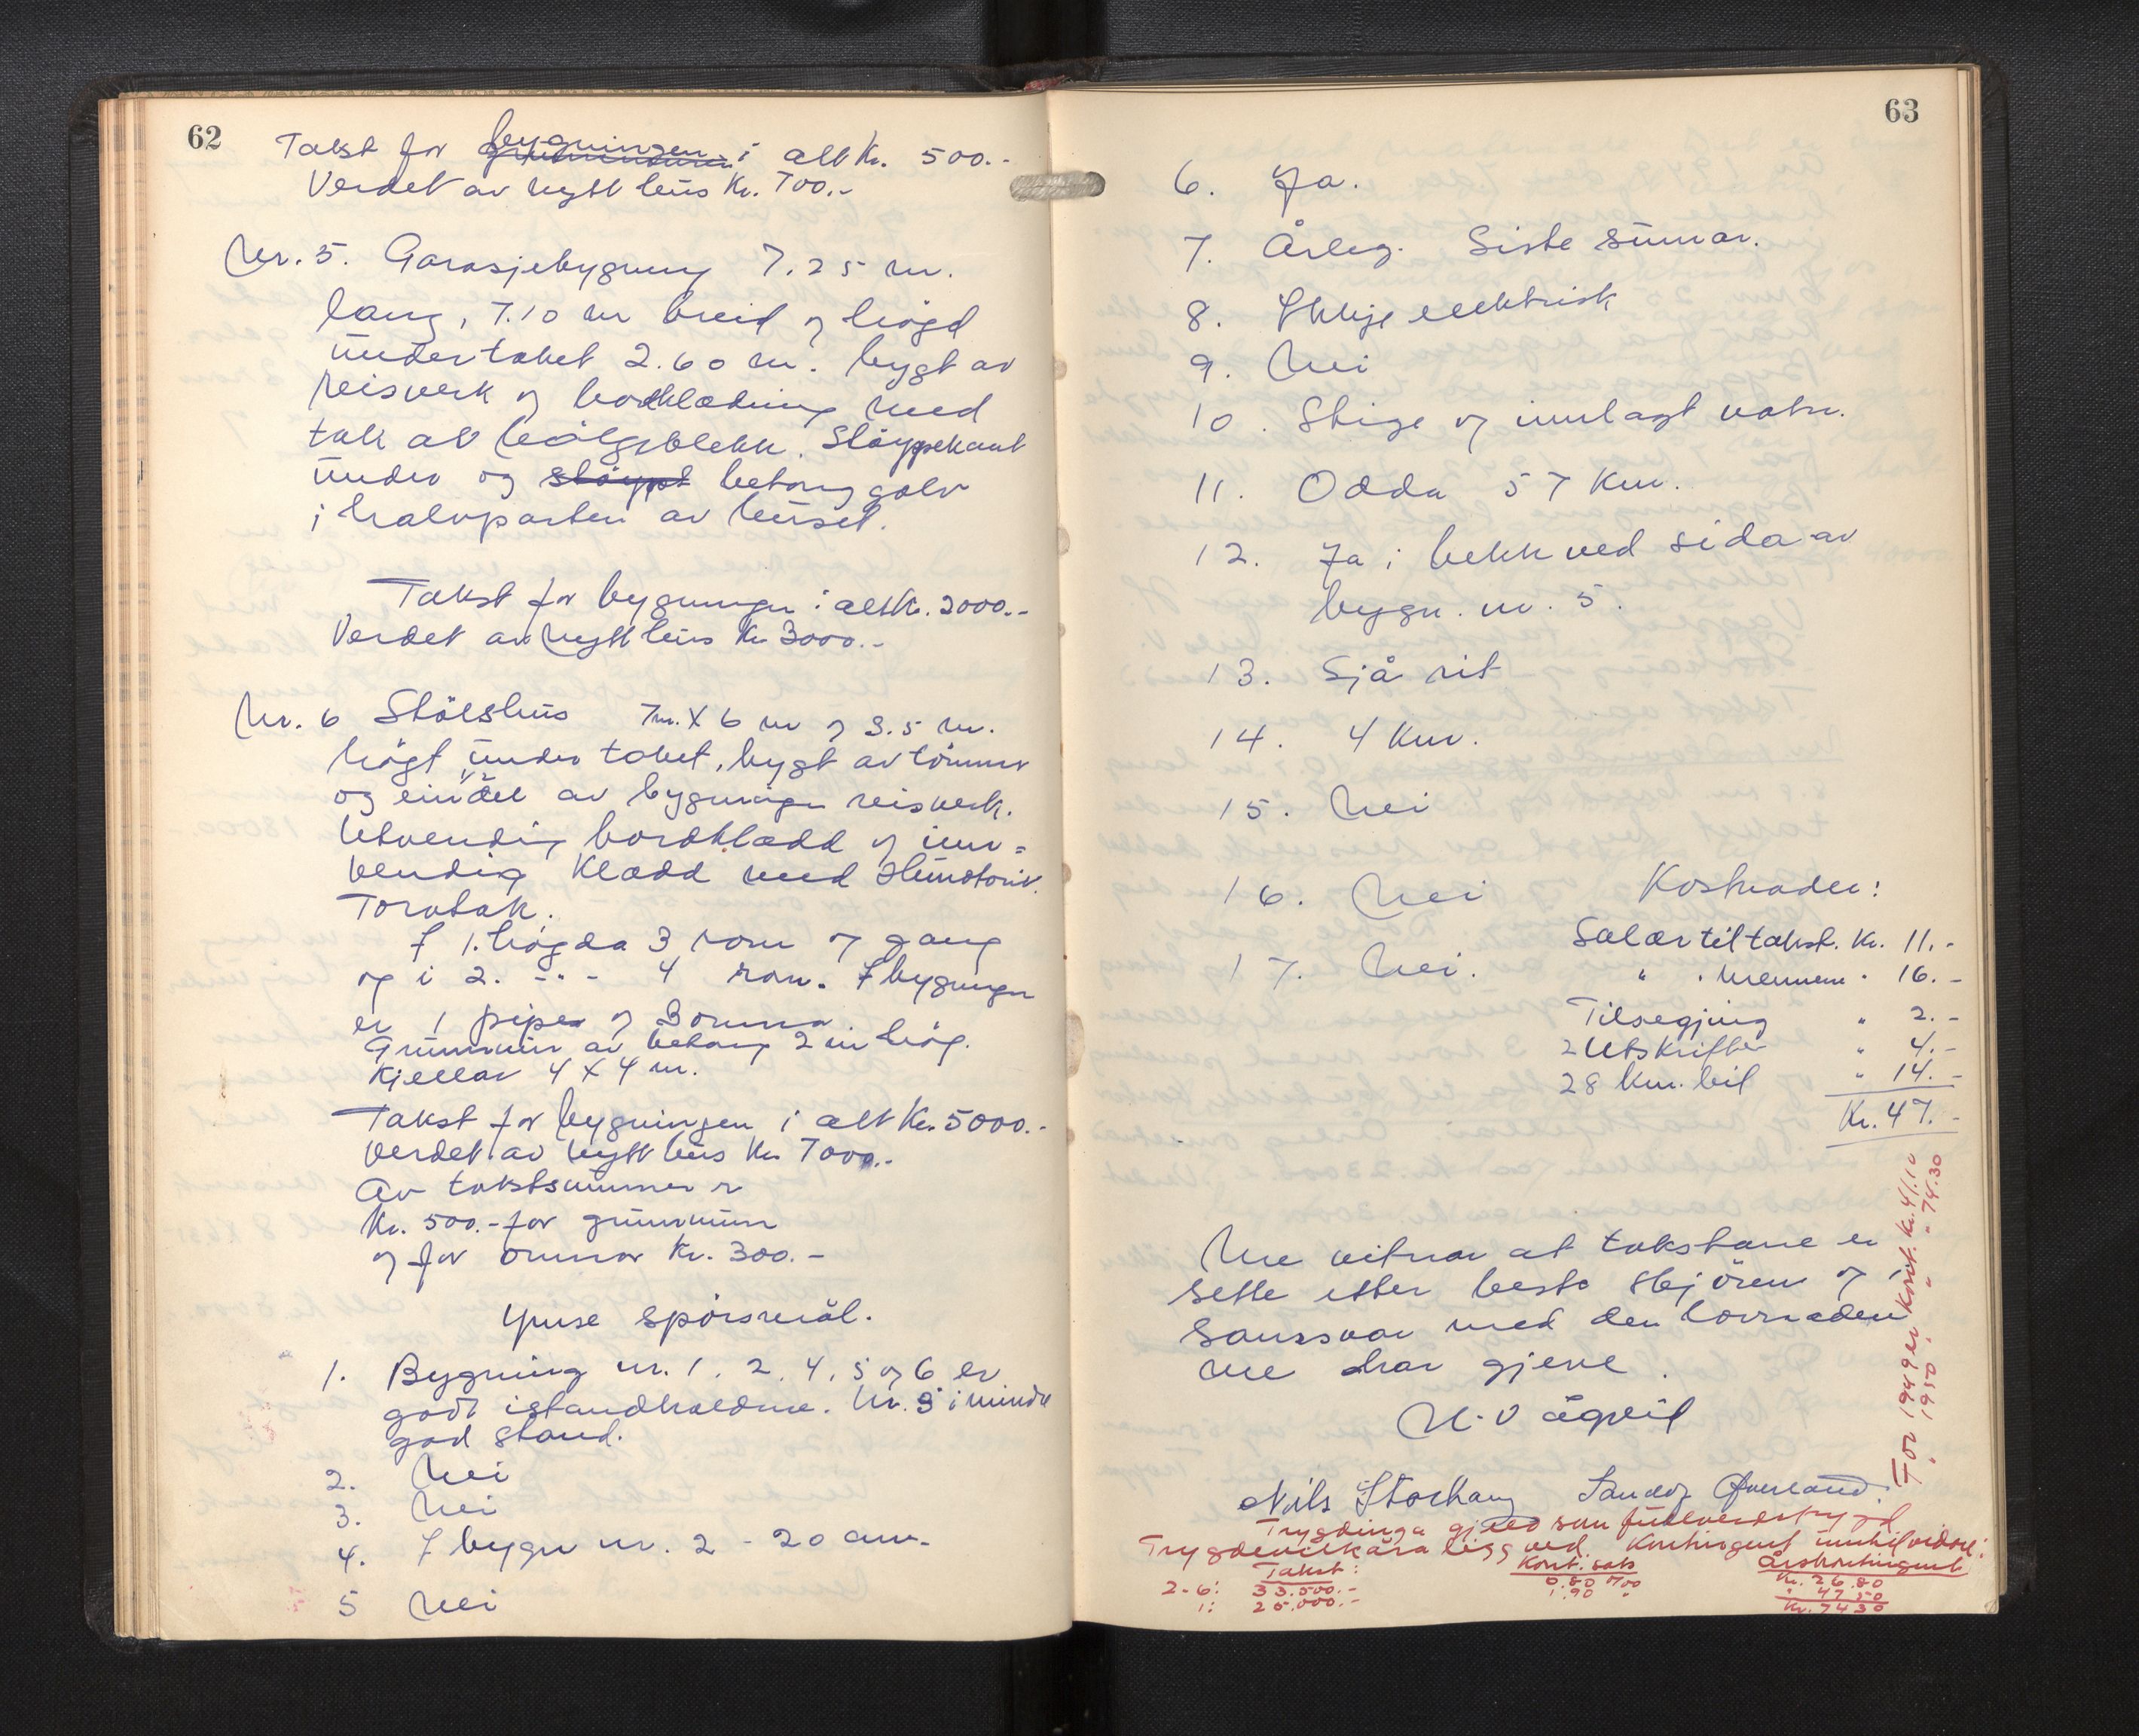 62
Takst for bygningen i alt Kr. 500.-
Verdet av nytt hus Kr. 700.-
Nr. 5. Garasjebygning 7.25 m.
lang, 7.10 m breid og högd
under taket 2.60 m. bygt av
reisverk og bordklædning med
tak av bölgeblekk. Stöypekant
under og stöypt betong golv
i halvparten av huset.
Takst for bygningen i alt Kr. 2000.-
Verdet av nytt hus Kr 3000.-
Nr. 6 Stölshus 7m. X 6 m og 3.5 m.
högt under taket, bygt av tömmer
og ein del av bygningen reisverk.
Utvendig bordklædd og inn=
vendig klædd med
Torvtak.
I 1. högda 3 rom og gang
og i 2. -"- 4 rom. I bygningen
er 1 pipe og 3 omnar.
Grunnmur av betong 2 m hög.
Kjellar 4 X 4 m.
Takst for bygningen i alt Kr. 5000.-
Verdet av nytt hus Kr 7000.-
Av takstsummen er
Kr. 500.- for grunnmur
og for omnar Kr. 300.-
Ymse spörsmål.
1. Bygning nr. 1, 2, 4, 5 og 6 er
godt istandhaldne. Nr. 3 i mindre
god stand.
2. Nei
3. Nei
4. I bygn nr. 2 - 20 cm.
5 Nei
63
6. Ja.
7. Årleg. Siste sumar.
8. Ikkje elektrisk
9. Nei
10. Stige og innlagt vatn.
11. Odda 57 Km.
12. Ja i bekk ved sida av
bygn. nr. 5.
13. Sjå rit
14. 4 Km.
15. Nei
16. Nei
Kostnader:
Salær til takst. Kr. 11.-
17. Nei.
" " mennene " 16.-
Tilsegjing " 2.-
2 Utskrifter " 4.-
28 km. bil " 14.-
Kr. 47.-
Me vitnar at takstane er
sette etter beste skjön og i
samsvar med den lovnaden
me har gjeve.
Nils Storhaug Sandof Øverland.
For 1949 er kont. Kr. 41.10
" 1950 " " " 74.30
Trygdinga gjeld som fullverdstrygd
Trygdevilkåra ligg ved. Kontingent inntil vidare:
Takst: Kont. sats Årskontingent
2-6: 33.500.- 0.80 ‰ Kr. 26.80
1: 25.000.- 1.90 " " 47.50
Kr. 74.30